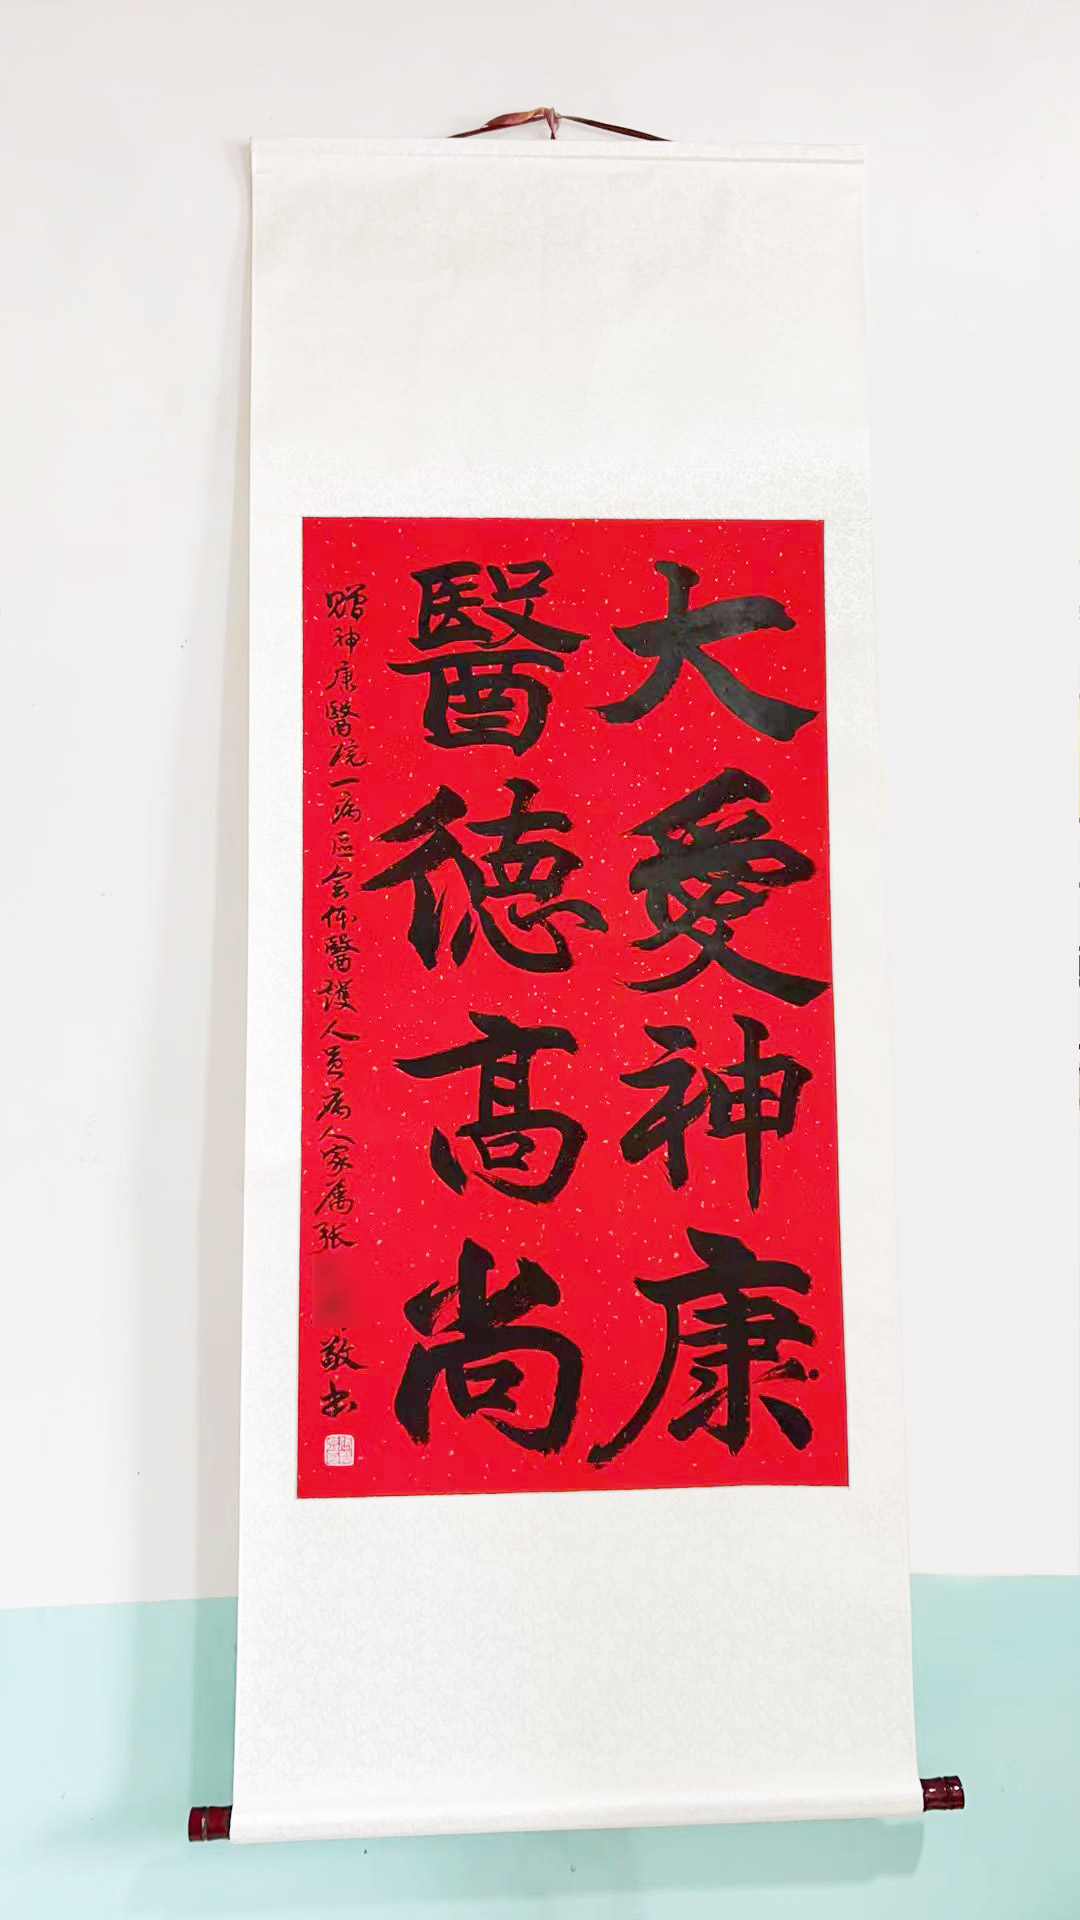 大愛神康
醫德高尚
贈神康醫院一病區全体醫護人員病人家属张
敬书